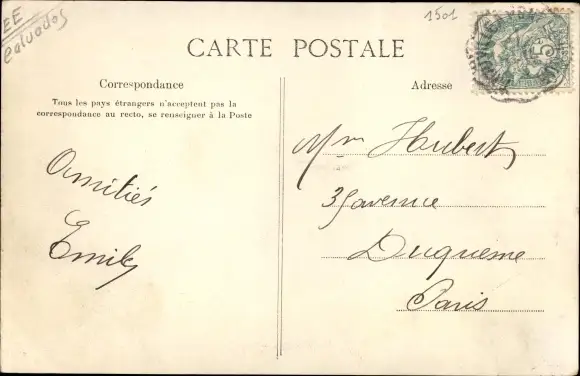 EE
Calvados
1501
CARTE POSTALE
Correspondance
Tous les pays étrangers n'acceptent pas la
correspondance au recto, se renseigner à la Poste
Adresse
Amitiés
Emile
Mr Hubert
3 avenue
Duquesne
Paris
5